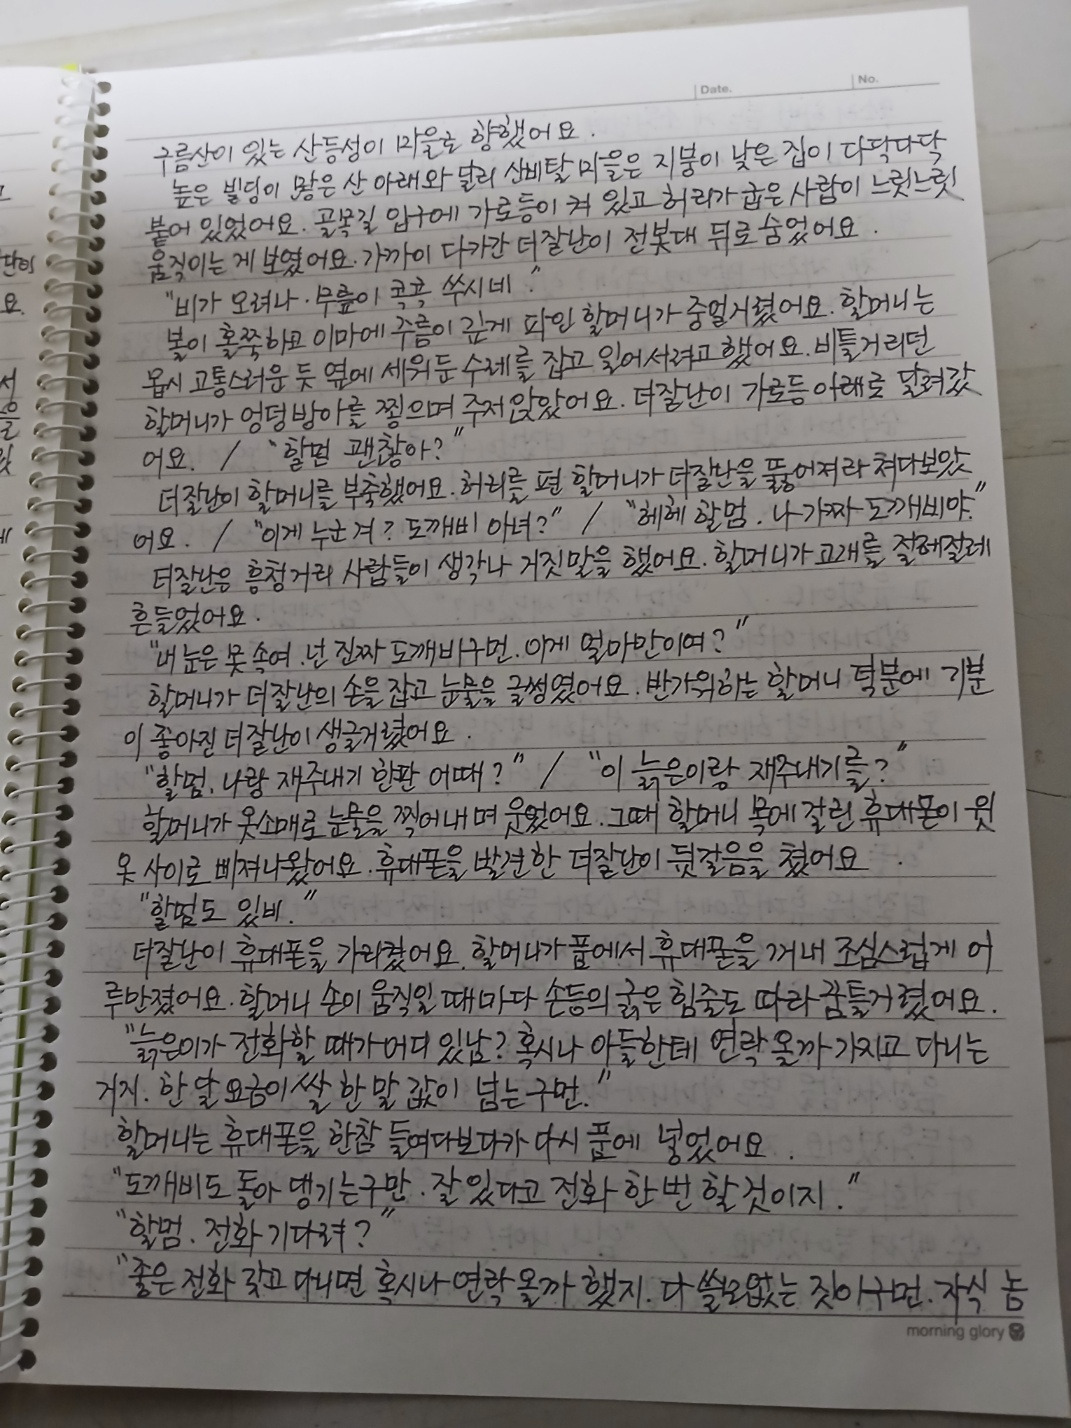 Date. No.
구름산이 있는 산등성이 마을로 향했어요.
높은 빌딩이 많은 산 아래와 달리 산비탈 마을은 지붕이 낮은 집이 다닥다닥
붙어 있었어요. 골목길 입구에 가로등이 켜 있고 허리가 굽은 사람이 느릿느릿
움직이는 게 보였어요. 가까이 다가간 더잘난이 전봇대 뒤로 숨었어요.
"비가 오려나. 무릎이 콕콕 쑤시네."
볼이 홀쭉하고 이마에 주름이 깊게 파인 할머니가 중얼거렸어요. 할머니는
몹시 고통스러운 듯 옆에 세워둔 수레를 잡고 일어서려고 했어요. 비틀거리던
할머니가 엉덩방아를 찧으며 주저앉았어요. 더잘난이 가로등 아래로 달려갔
어요. / "할멈 괜찮아?"
더잘난이 할머니를 부축했어요. 허리를 편 할머니가 더잘난을 뚫어져라 쳐다보았
어요. / "이게 누군겨? 도깨비 아녀?" / "헤헤 할멈. 나 가짜 도깨비야."
더잘난은 흥청거리 사람들이 생각나 거짓말을 했어요. 할머니가 고개를 절레절레
흔들었어요.
"내 눈은 못 속여. 넌 진짜 도깨비구먼. 이게 얼마만이여?"
할머니가 더잘난의 손을 잡고 눈물을 글썽였어요. 반가워하는 할머니 덕분에 기분
이 좋아진 더잘난이 생글거렸어요.
"할멈, 나랑 재주내기 한판 어때?" / "이 늙은이랑 재주내기를?"
할머니가 옷소매로 눈물을 찍어내며 웃었어요. 그때 할머니 목에 걸린 휴대폰이 윗
옷 사이로 삐져나왔어요. 휴대폰을 발견한 더잘난이 뒷걸음을 쳤어요.
"할멈도 있네."
더잘난이 휴대폰을 가리켰어요. 할머니가 품에서 휴대폰을 꺼내 조심스럽게 어
루만졌어요. 할머니 손이 움직일 때마다 손등의 굵은 힘줄도 따라 꿈틀거렸어요.
"늙은이가 전화할 때가 어디 있남? 혹시나 아들한테 연락 올까 가지고 다니는
거지. 한 달 요금이 쌀 한 말 값이 넘는구먼."
할머니는 휴대폰을 한참 들여다보다가 다시 품에 넣었어요.
"도깨비도 돌아 댕기는구만. 잘 있다고 전화 한 번 할 것이지."
"할멈. 전화 기다려?"
"좋은 전화 갖고 다니면 혹시나 연락 올까 했지. 다 쓸모없는 짓이구먼. 자식 놈
morning glory